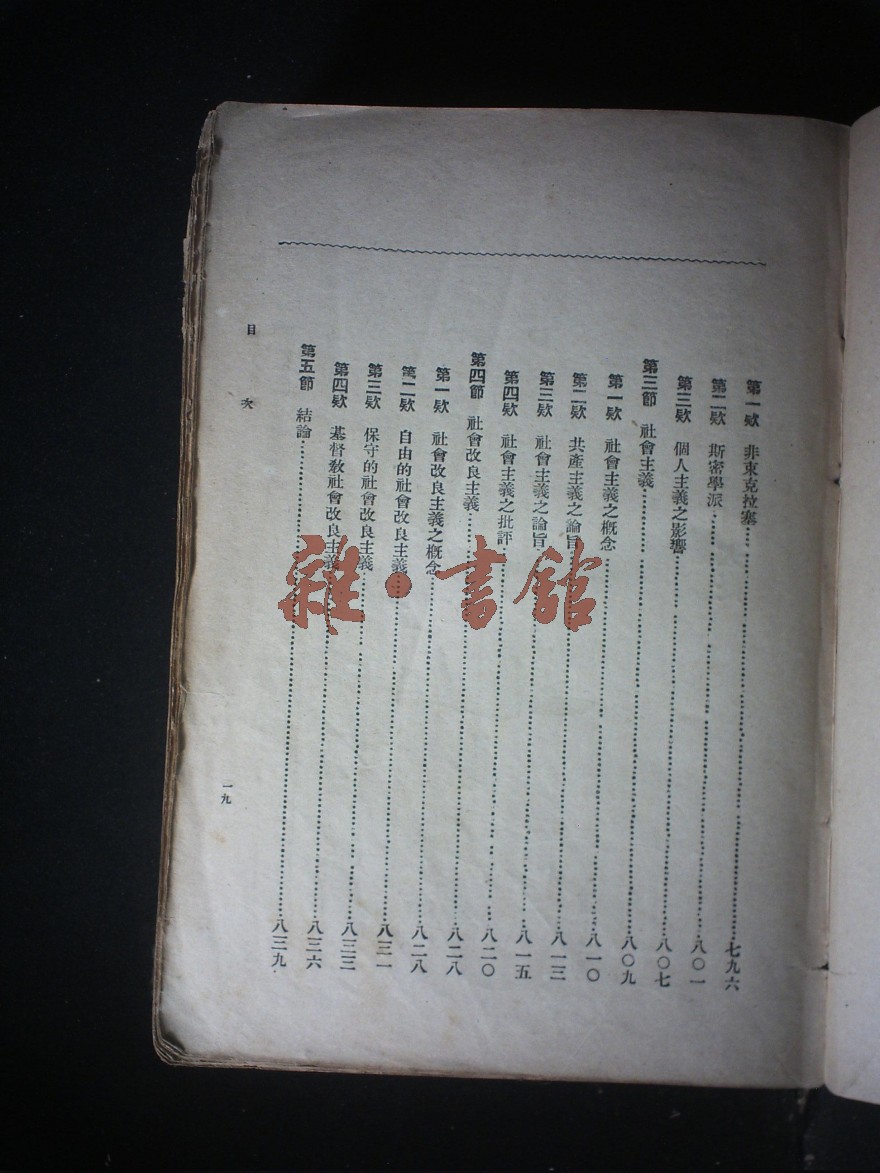 第一欵 非東克拉塞……七九六
第二欵 斯密學派……八〇一
第三欵 個人主義之影響……八〇七
第三節 社會主義……八〇九
第一欵 社會主義之概念……八一〇
第二欵 共產主義之論旨……八一三
第三欵 社會主義之論旨……八一五
第四欵 社會主義之批評……八二〇
第四節 社會改良主義……八二八
第一欵 社會改良主義之概念……八二八
第二欵 自由的社會改良主義……八三一
第三欵 保守的社會改良主義……八三三
第四欵 基督敎社會改良主義……八三六
第五節 結論……八三九
目次
一九
雜·書館